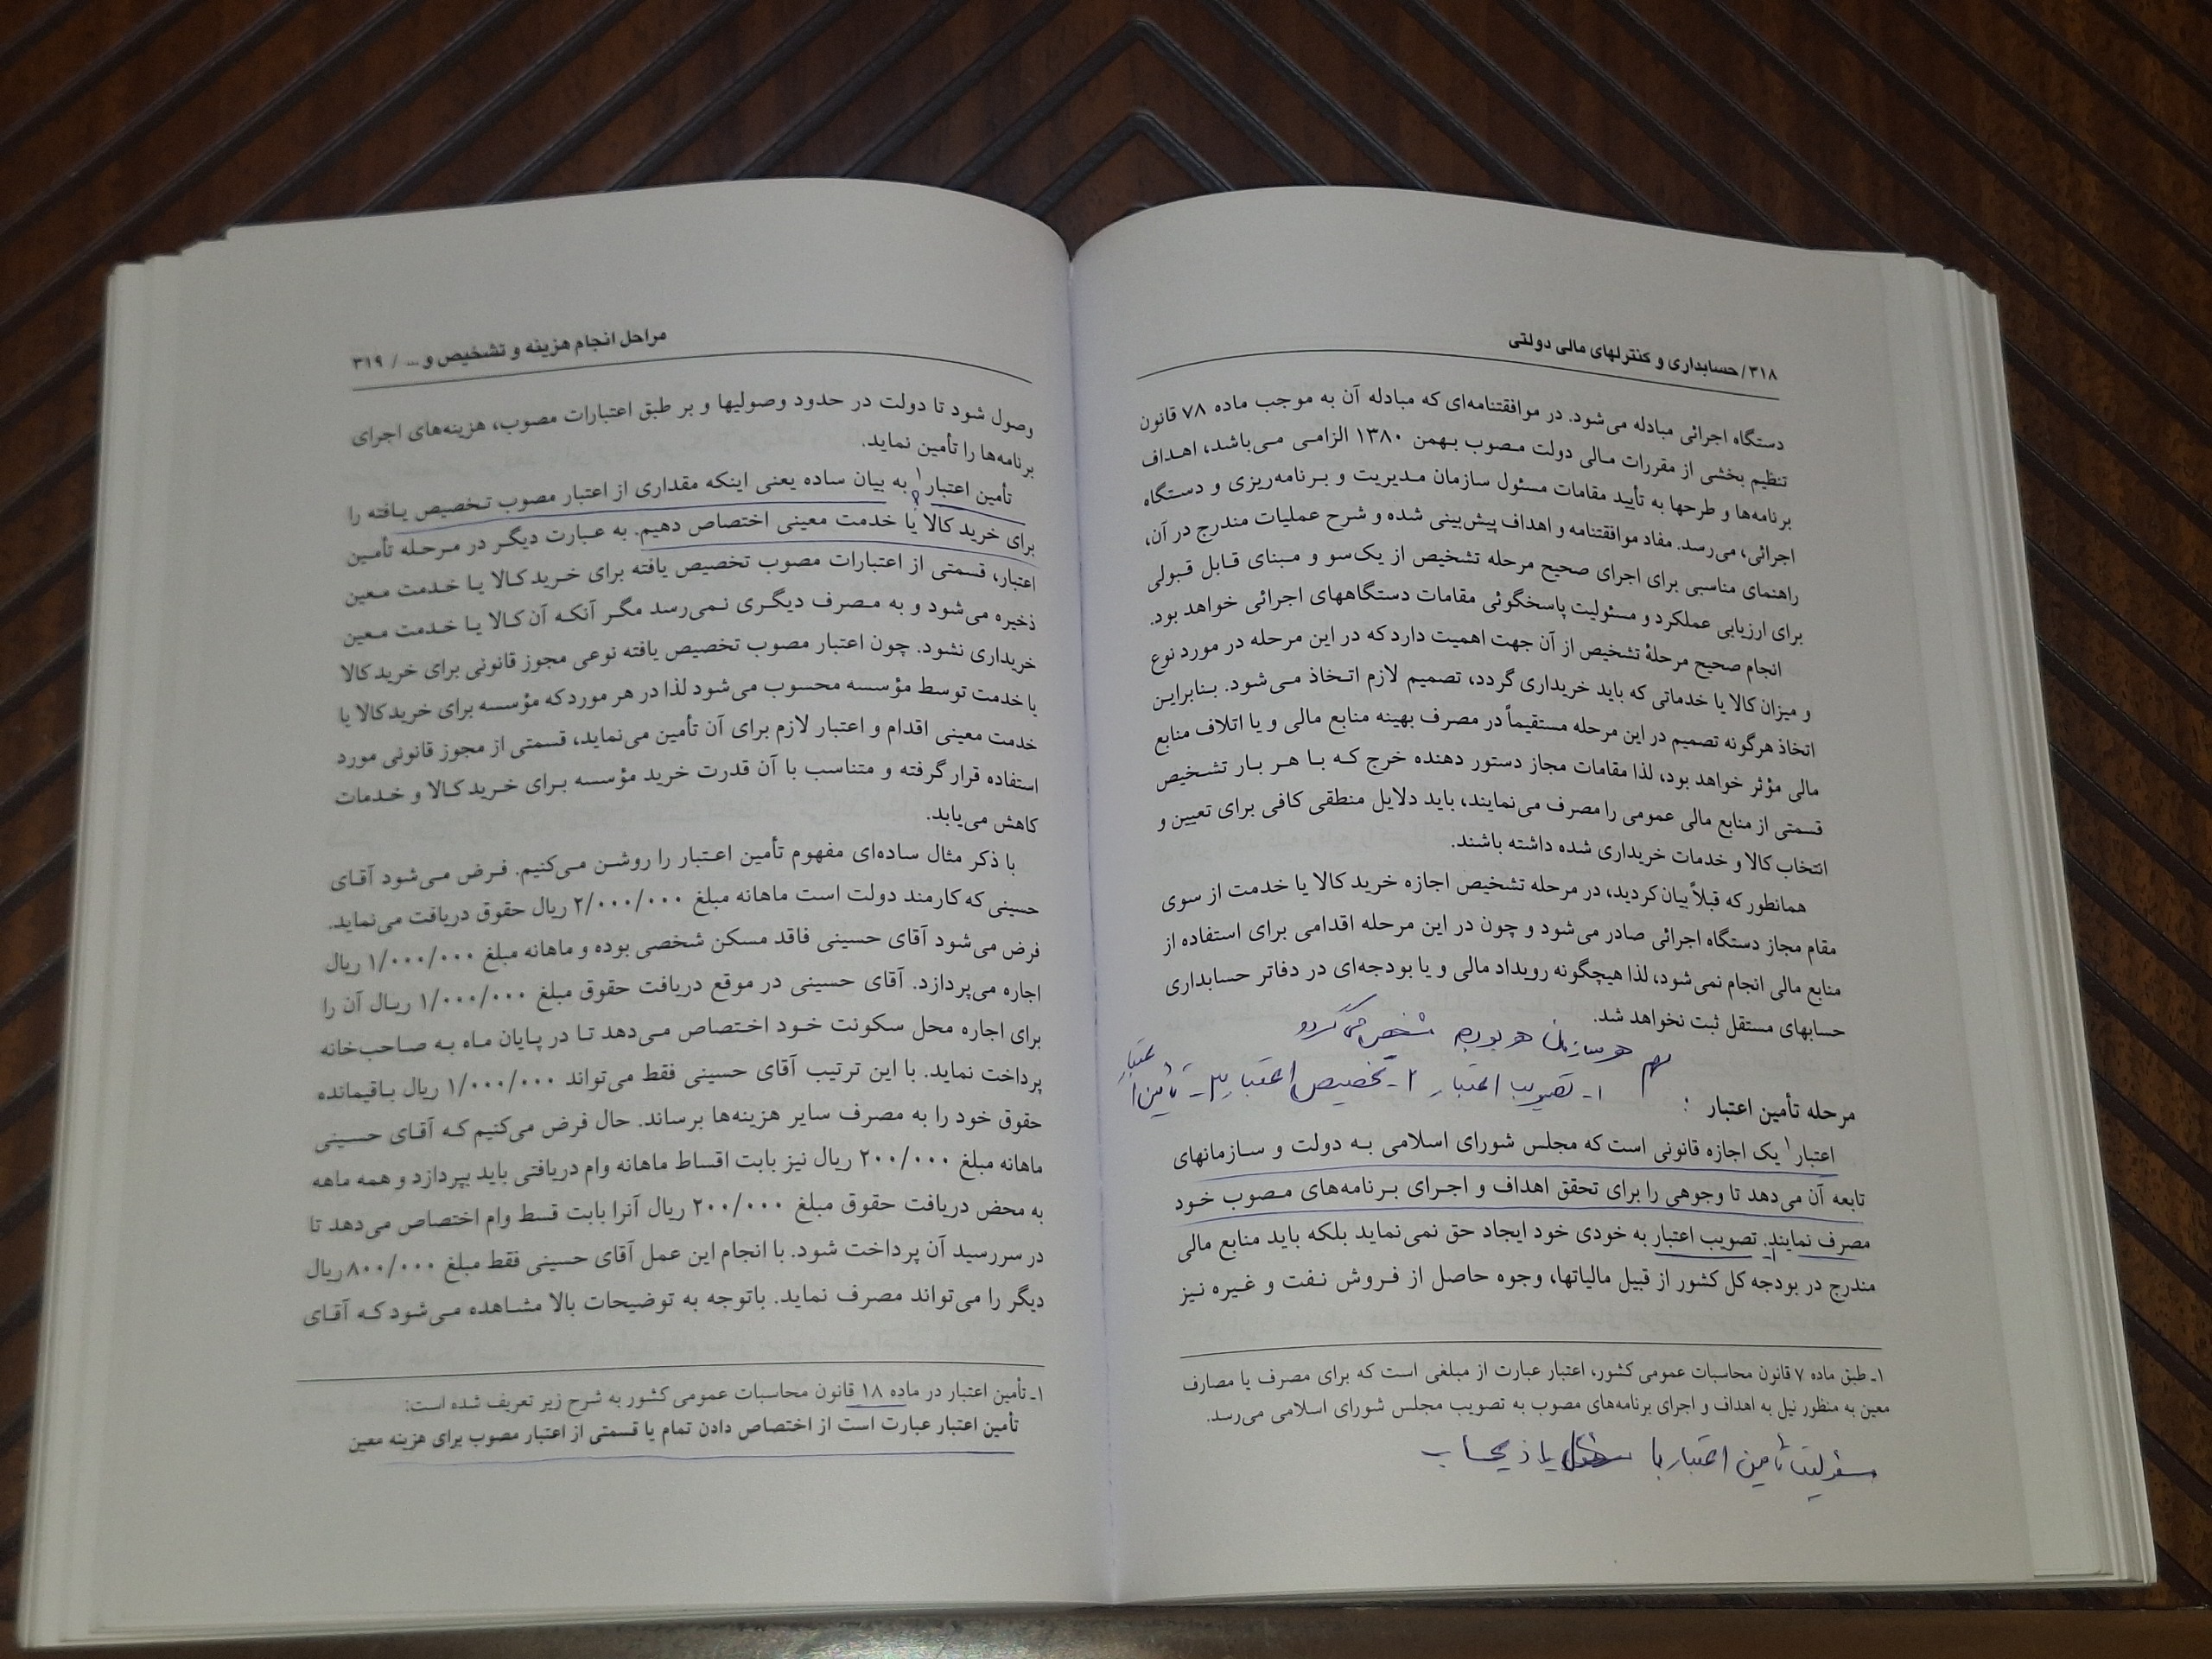 ۳۱۸/ حسابداری و کنترلهای مالی دولتی
دستگاه اجرائی مبادله می‌شود. در موافقتنامه‌ای که مبادله آن به موجب ماده ۷۸ قانون
تنظیم بخشی از مقررات مالی دولت مصوب بهمن ۱۳۸۰ الزامی می‌باشد، اهداف
برنامه‌ها و طرحها به تأیید مقامات مسئول سازمان مدیریت و برنامه‌ریزی و دستگاه
اجرائی، می‌رسد. مفاد موافقتنامه و اهداف پیش‌بینی شده و شرح عملیات مندرج در آن،
راهنمای مناسبی برای اجرای صحیح مرحله تشخیص از یک‌سو و مبنای قابل قبولی
برای ارزیابی عملکرد و مسئولیت پاسخگوئی مقامات دستگاههای اجرائی خواهد بود.
انجام صحیح مرحلهٔ تشخیص از آن جهت اهمیت دارد که در این مرحله در مورد نوع
و میزان کالا یا خدماتی که باید خریداری گردد، تصمیم لازم اتخاذ می‌شود. بنابراین
اتخاذ هرگونه تصمیم در این مرحله مستقیماً در مصرف بهینه منابع مالی و یا اتلاف منابع
مالی مؤثر خواهد بود، لذا مقامات مجاز دستور دهنده خرج که با هر بار تشخیص
قسمتی از منابع مالی عمومی را مصرف می‌نمایند، باید دلایل منطقی کافی برای تعیین و
انتخاب کالا و خدمات خریداری شده داشته باشند.
همانطور که قبلاً بیان کردید، در مرحله تشخیص اجازه خرید کالا یا خدمت از سوی
مقام مجاز دستگاه اجرائی صادر می‌شود و چون در این مرحله اقدامی برای استفاده از
منابع مالی انجام نمی‌شود، لذا هیچگونه رویداد مالی و یا بودجه‌ای در دفاتر حسابداری
حسابهای مستقل ثبت نخواهد شد.
سهم هر سازمان هر بودجه مشخص می‌گردد
۱- تصویب اعتبار ۲- تخصیص اعتبار ۳- تأمین اعتبار
مرحله تأمین اعتبار :
اعتبار۱ یک اجازه قانونی است که مجلس شورای اسلامی به دولت و سازمانهای
تابعه آن می‌دهد تا وجوهی را برای تحقق اهداف و اجرای برنامه‌های مصوب خود
مصرف نمایند. تصویب اعتبار به خودی خود ایجاد حق نمی‌نماید بلکه باید منابع مالی
مندرج در بودجه کل کشور از قبیل مالیاتها، وجوه حاصل از فروش نفت و غیره نیز
۱ـ طبق ماده ۷ قانون محاسبات عمومی کشور، اعتبار عبارت از مبلغی است که برای مصرف یا مصارف
معین به منظور نیل به اهداف و اجرای برنامه‌های مصوب به تصویب مجلس شورای اسلامی می‌رسد.
مسئولیت تأمین اعتبار با ذیحساب
مراحل انجام هزینه و تشخیص و ... / ۳۱۹
وصول شود تا دولت در حدود وصولیها و بر طبق اعتبارات مصوب، هزینه‌های اجرای
برنامه‌ها را تأمین نماید.
تأمین اعتبار۱ به بیان ساده یعنی اینکه مقداری از اعتبار مصوب تخصیص یافته را
برای خرید کالا یا خدمت معینی اختصاص دهیم. به عبارت دیگر در مرحله تأمین
اعتبار، قسمتی از اعتبارات مصوب تخصیص یافته برای خرید کالا یا خدمت معین
ذخیره می‌شود و به مصرف دیگری نمی‌رسد مگر آنکه آن کالا یا خدمت معین
خریداری نشود. چون اعتبار مصوب تخصیص یافته نوعی مجوز قانونی برای خرید کالا
یا خدمت توسط مؤسسه محسوب می‌شود لذا در هر مورد که مؤسسه برای خرید کالا یا
خدمت معینی اقدام و اعتبار لازم برای آن تأمین می‌نماید، قسمتی از مجوز قانونی مورد
استفاده قرار گرفته و متناسب با آن قدرت خرید مؤسسه برای خرید کالا و خدمات
کاهش می‌یابد.
با ذکر مثال ساده‌ای مفهوم تأمین اعتبار را روشن می‌کنیم. فرض می‌شود آقای
حسینی که کارمند دولت است ماهانه مبلغ ۲/۰۰۰/۰۰۰ ریال حقوق دریافت می‌نماید.
فرض می‌شود آقای حسینی فاقد مسکن شخصی بوده و ماهانه مبلغ ۱/۰۰۰/۰۰۰ ریال
اجاره می‌پردازد. آقای حسینی در موقع دریافت حقوق مبلغ ۱/۰۰۰/۰۰۰ ریال آن را
برای اجاره محل سکونت خود اختصاص می‌دهد تا در پایان ماه به صاحب‌خانه
پرداخت نماید. با این ترتیب آقای حسینی فقط می‌تواند ۱/۰۰۰/۰۰۰ ریال باقیمانده
حقوق خود را به مصرف سایر هزینه‌ها برساند. حال فرض می‌کنیم که آقای حسینی
ماهانه مبلغ ۲۰۰/۰۰۰ ریال نیز بابت اقساط ماهانه وام دریافتی باید بپردازد و همه ماهه
به محض دریافت حقوق مبلغ ۲۰۰/۰۰۰ ریال آنرا بابت قسط وام اختصاص می‌دهد تا
در سررسید آن پرداخت شود. با انجام این عمل آقای حسینی فقط مبلغ ۸۰۰/۰۰۰ ریال
دیگر را می‌تواند مصرف نماید. باتوجه به توضیحات بالا مشاهده می‌شود که آقای
۱ـ تأمین اعتبار در ماده ۱۸ قانون محاسبات عمومی کشور به شرح زیر تعریف شده است:
تأمین اعتبار عبارت است از اختصاص دادن تمام یا قسمتی از اعتبار مصوب برای هزینه معین